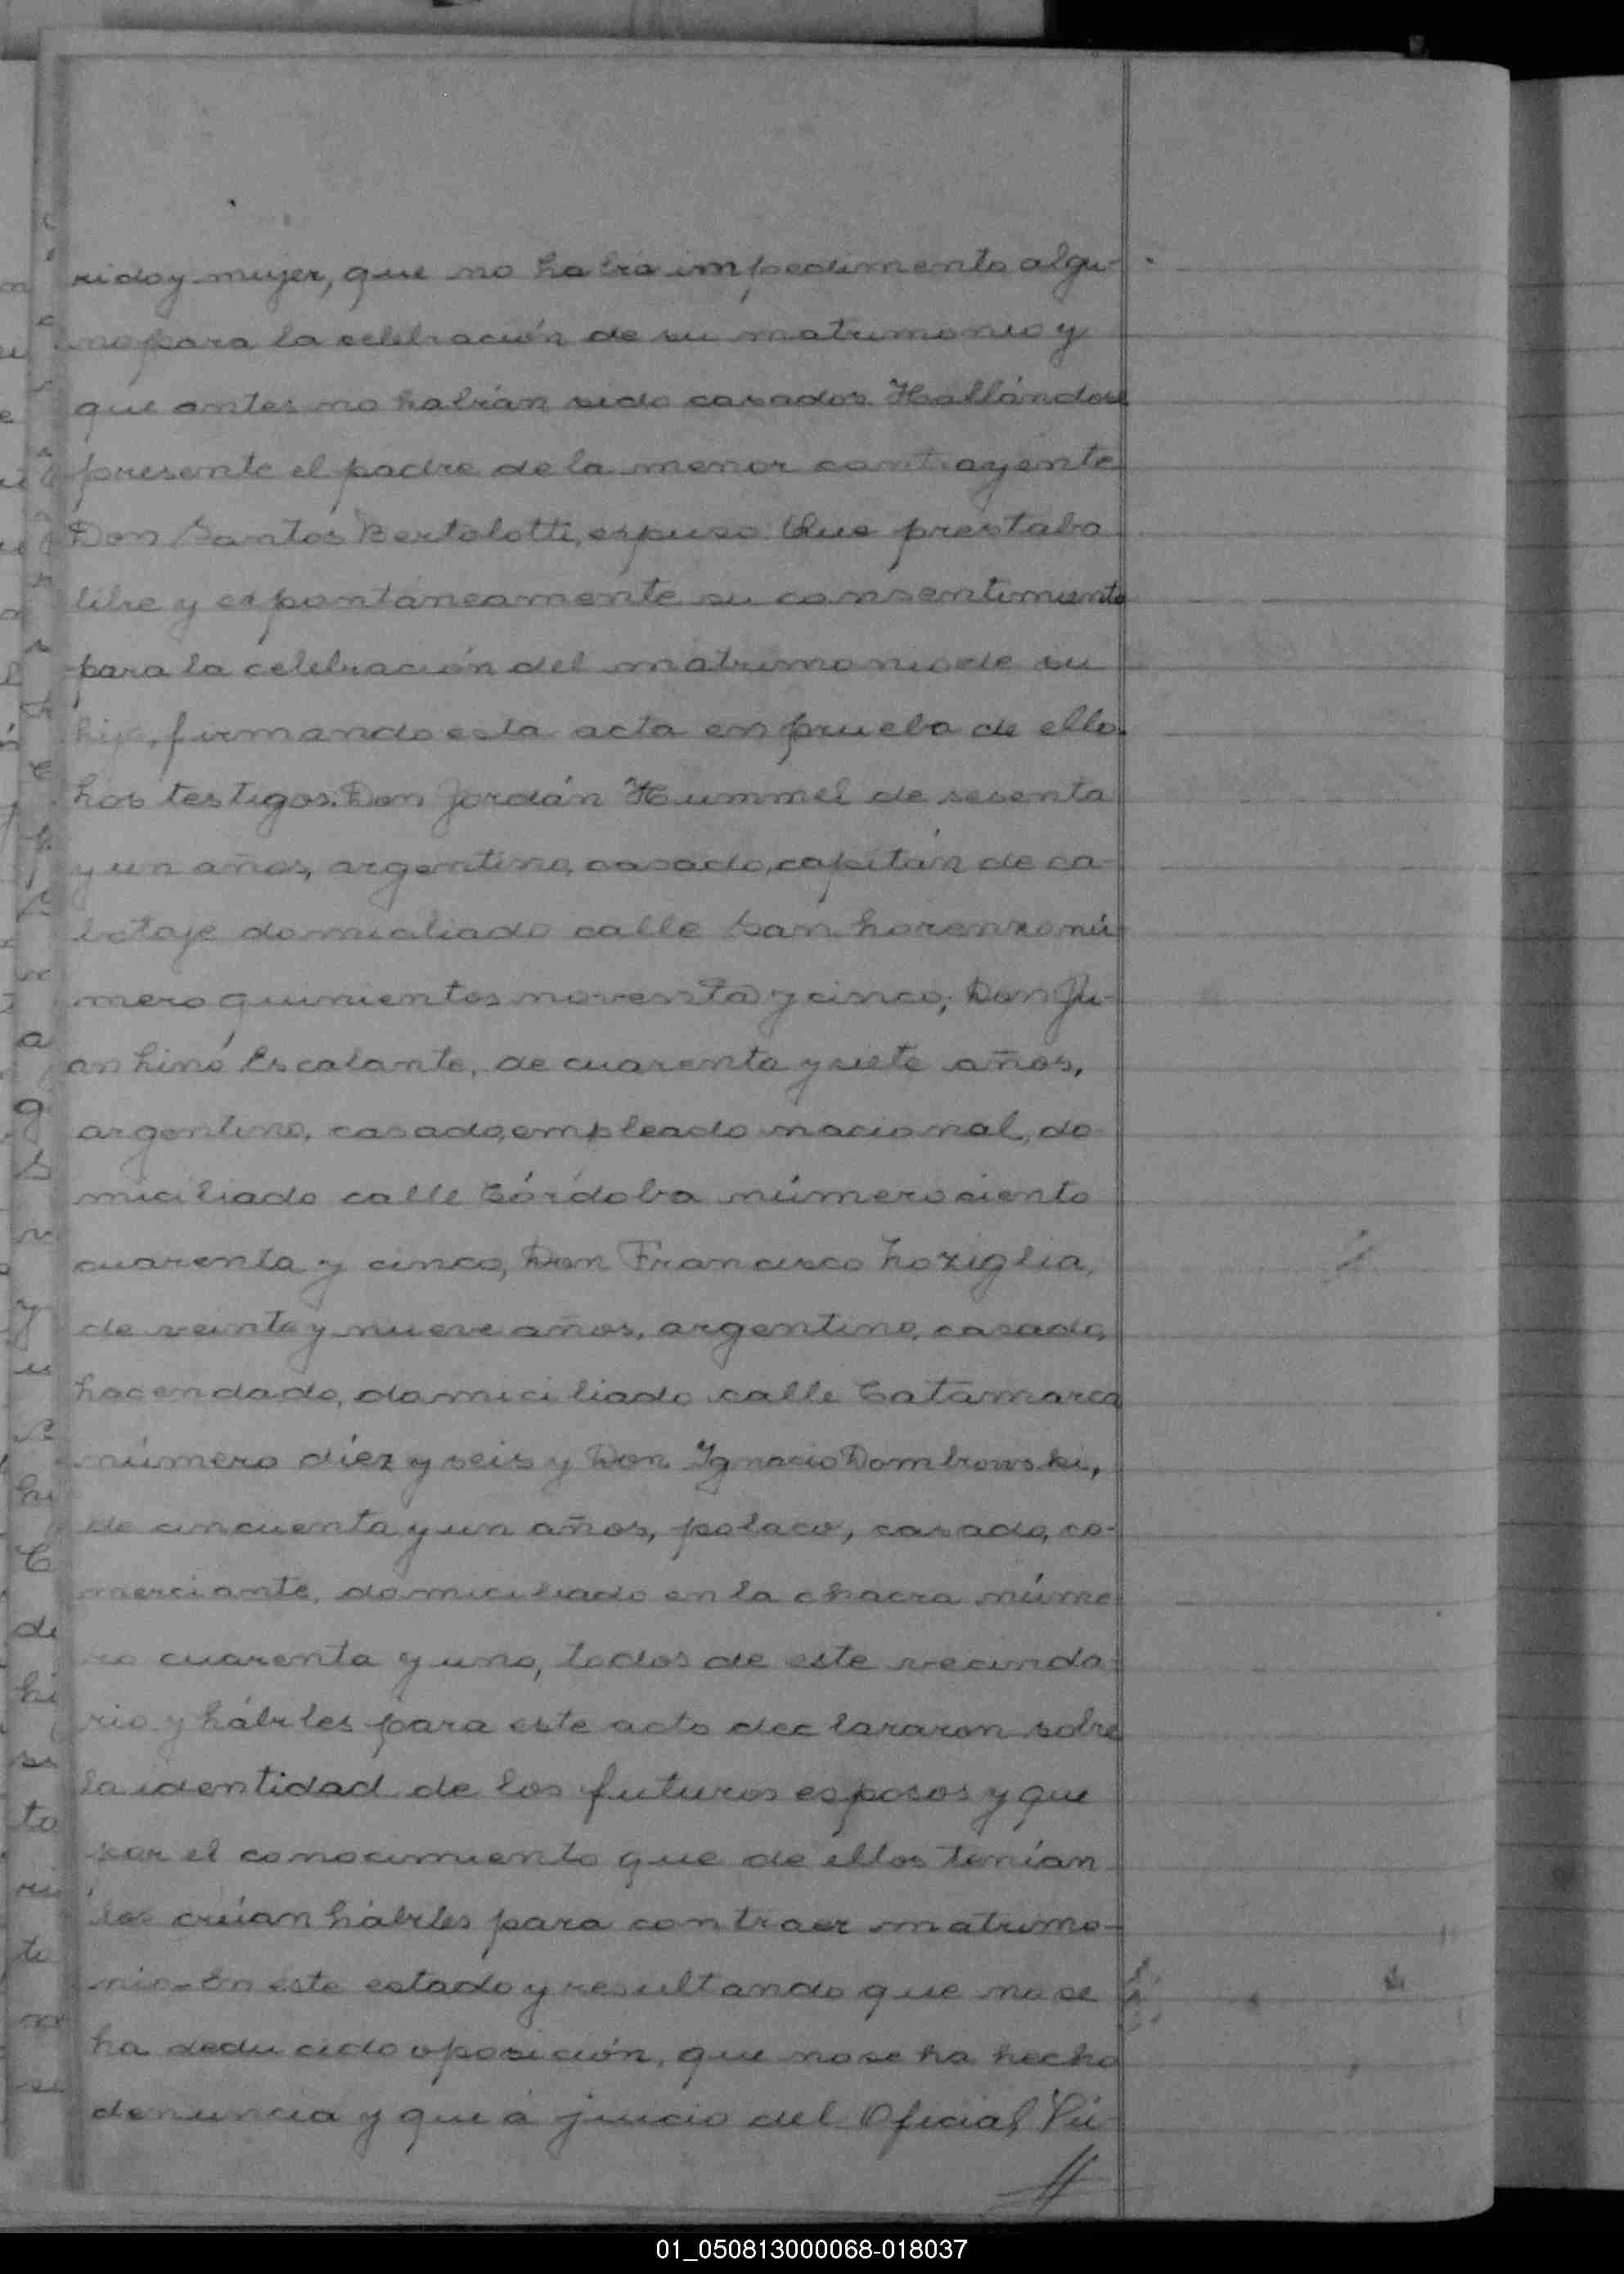 rido y mujer, que no había impedimento algu-
no para la celebración de su matrimonio y
que antes no habían sido casados. Hallándose
presente el padre de la menor contrayente
Don Santos Bertolotti, espuso: Que prestaba
libre y espontáneamente su consentimiento
para la celebración del matrimonio de su
hija, firmando esta acta en prueba de ello.
Los testigos: Don Jordán Hummel de sesenta
y un años, argentino, casado, capitán de ca-
botaje domiciliado calle San Lorenzo nú-
mero quinientos noventa y cinco; Don Ju-
an Lino Escalante, de cuarenta y siete años,
argentino, casado, empleado nacional, do-
miciliado calle Córdoba número ciento
cuarenta y cinco, Don Francisco Loziglia,
de veinte y nueve años, argentino, casado,
hacendado, domiciliado calle Catamarca
número diez y seis y Don Ignacio Dombrowski,
de cincuenta y un años, polaco, casado, co-
merciante, domiciliado en la chacra núme-
ro cuarenta y uno, todos de este vecinda-
rio y hábiles para este acto declararon sobre
la identidad de los futuros esposos y que
por el conocimiento que de ellos tenían
los creían hábiles para contraer matrimo-
nio. En este estado y resultando que no se
ha deducido oposición, que no se ha hecho
denuncia y que á juicio del Oficial Pú-
01_050813000068-018037